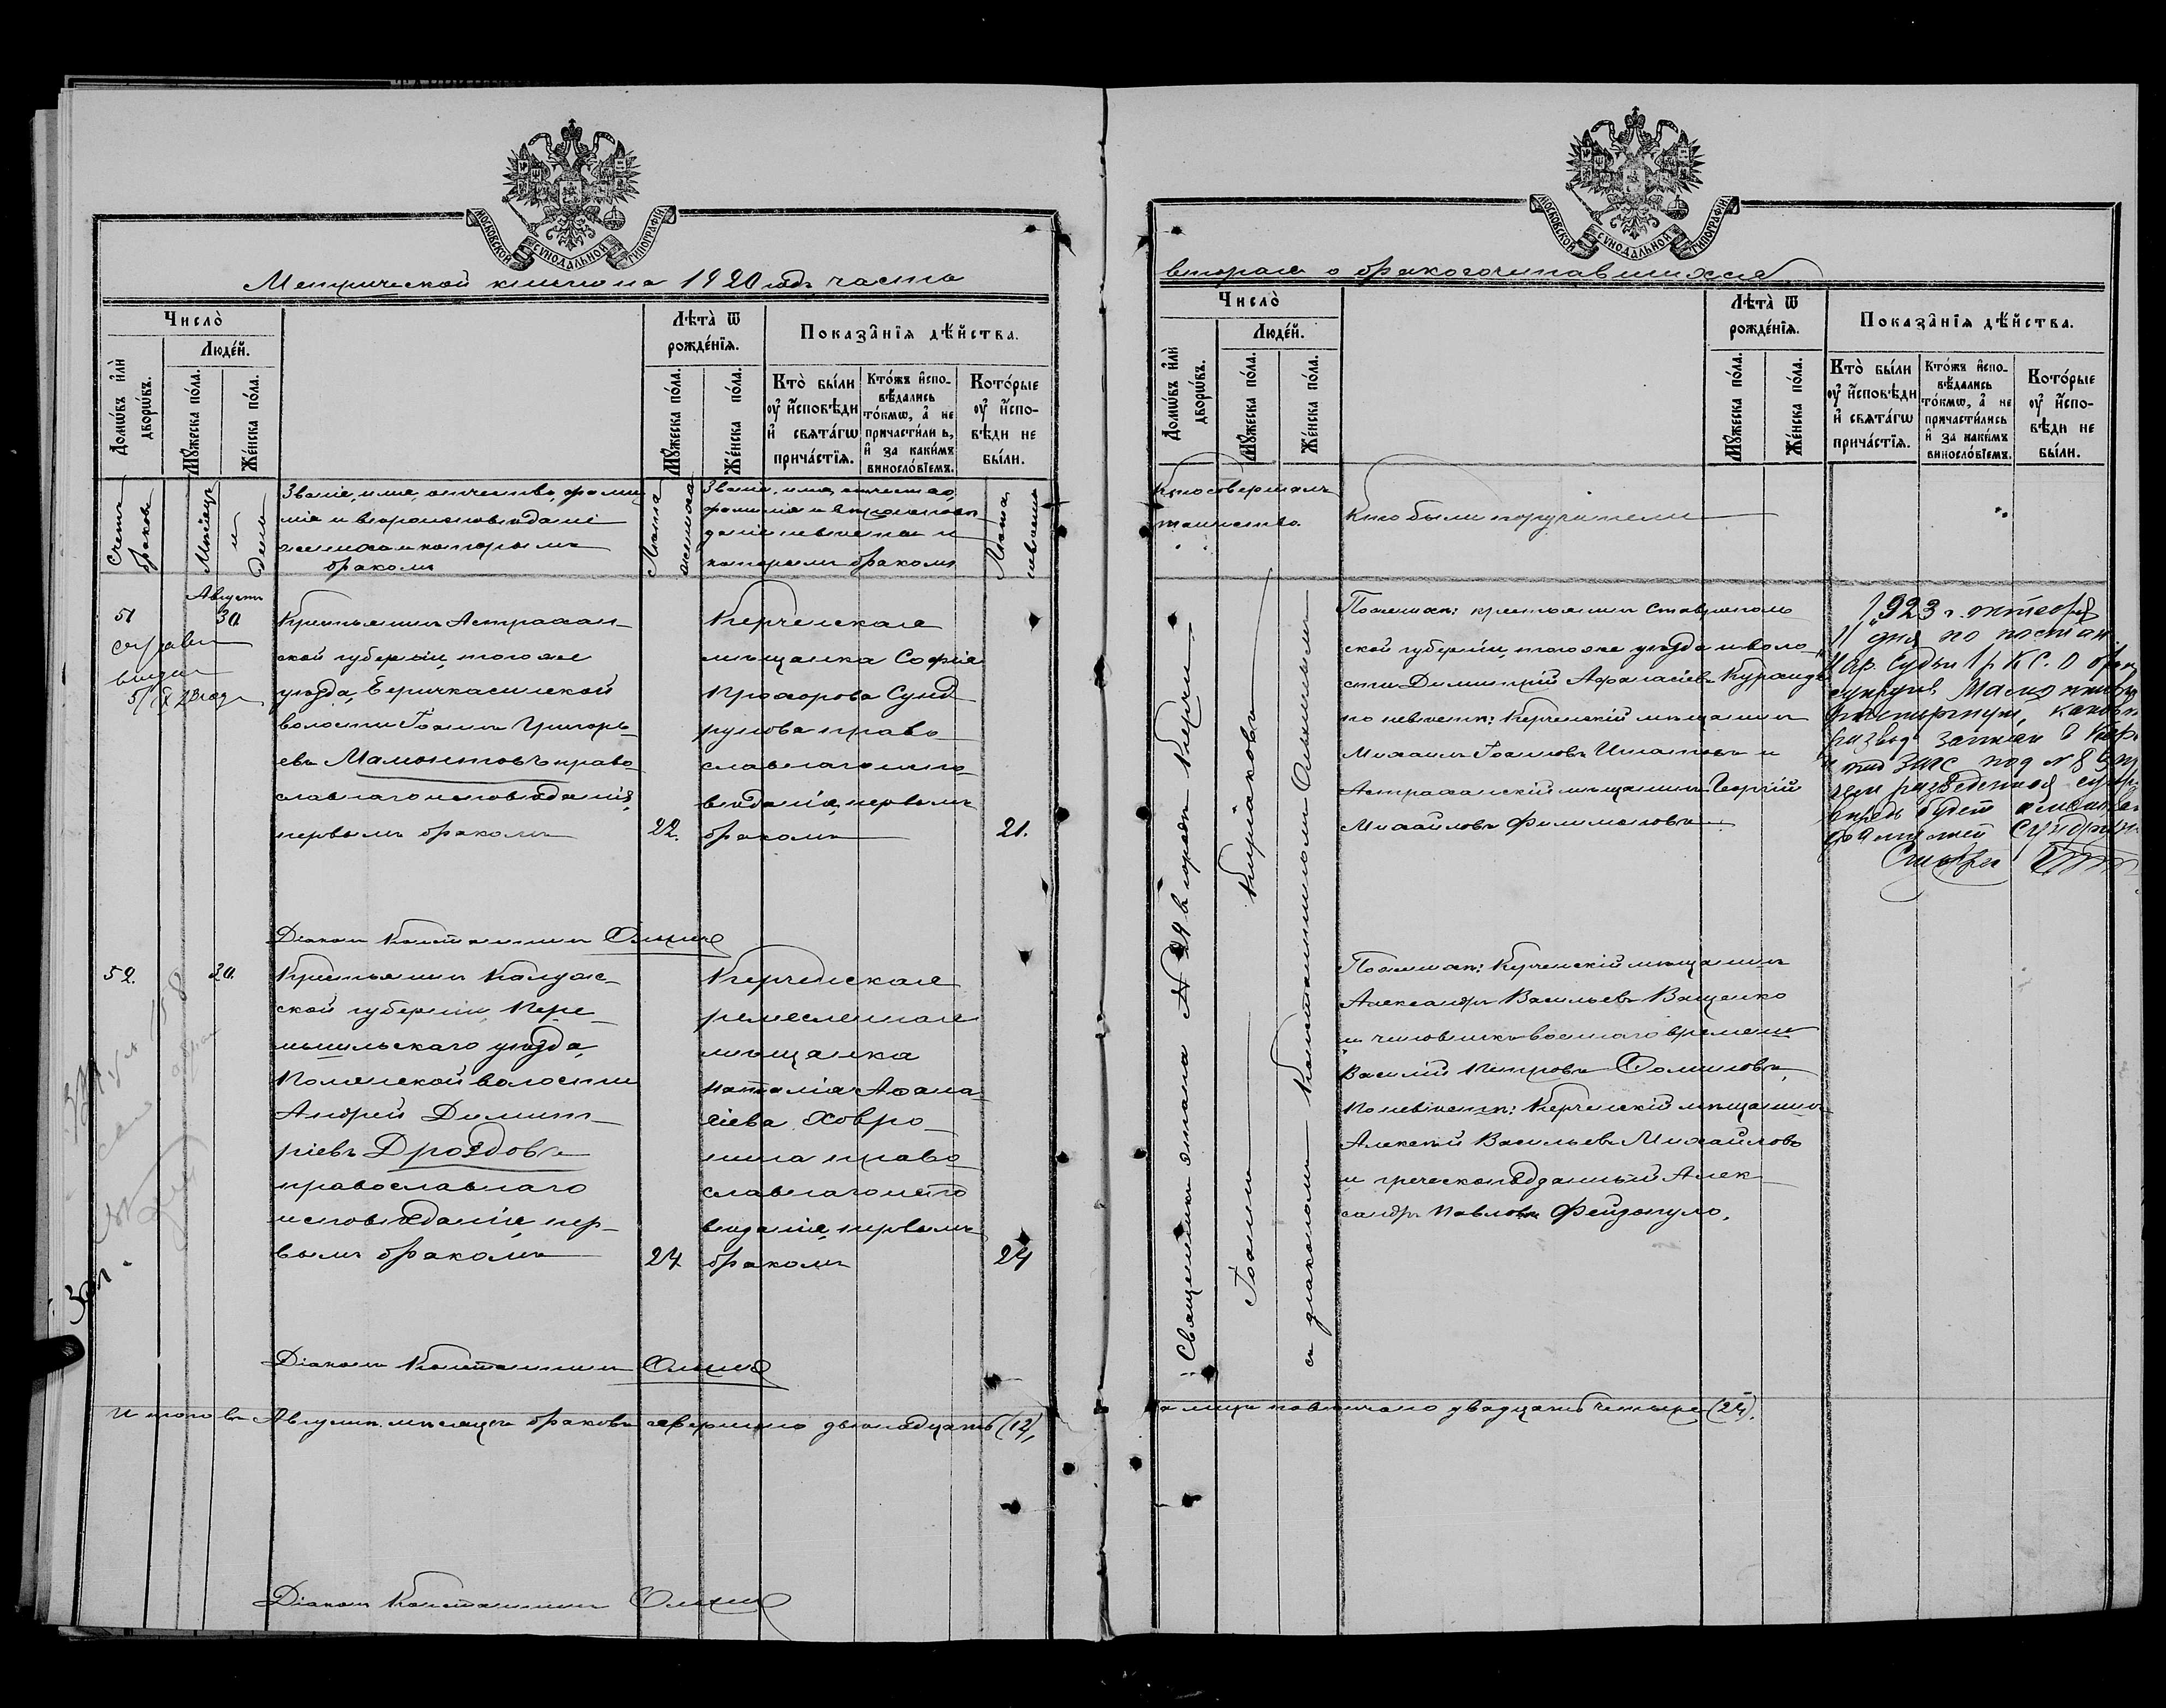 МОСКОВСКОЙ СѴНОДАЛЬНОЙ ТИПОГРАФІИ
Метрической книги на 1920 годъ часть
Число̀
Людей.
Домѡвъ и҆лѝ дворѡвъ.
Мꙋжеска по́ла.
Же́нска по́ла.
Лѣта̀ ѿ рожде́нїѧ.
Мꙋжеска по́ла.
Же́нска по́ла.
Показа̂нїѧ дѣ́йства.
Кто̀ бы́ли ᲂу҆ и҆́сповѣди и҆ свѧта́гѡ прича́стїѧ.
Кто́жъ и҆спо-
вѣ́дались
то́кмѡ, а҆ не
причасти́ли ь,
и҆ за каки́мъ
винос​ло́вїемъ.
Кото́рые
ᲂу҆ и҆́спо-
вѣди не
бы́ли.
Счетъ браковъ
Мѣсяцъ и день
Званіе, имя, отчество, фами
лія и вѣроисповѣданіе
жениха и которымъ
бракомъ
Лѣта жениха
Званіе, имя, отчество,
фамилія и вѣроисповѣ
даніе невѣсты и
которымъ бракомъ
Лѣта невѣсты
Августъ
51
30
Крестьянинъ Астрахан-
ской губерніи, того же
уѣзда,
волости Іоаннъ Григорь-
евъ Мамонтовъ право-
славнаго исповѣданія,
первымъ бракомъ
22.
Керченская
мѣщанка Софія
Прохорова Сунд
рукова право
славнаго испо-
вѣданія, первымъ
бракомъ
21.
Діаконъ Константинъ
52.
30.
Крестьянинъ Калуж-
ской губерніи, Пере-
мышльскаго уѣзда,
волости
Андрей Димит-
ріевъ Дроздовъ
православнаго
исповѣданія, пер-
вымъ бракомъ
24
Керченская
ремесленная
мѣщанка
Наталія Афана-
сіева Ховро-
нина право
славнаго испо
вѣданія, первымъ
бракомъ
24
Діаконъ Константинъ
Итого въ Августѣ мѣсяцѣ браковъ совершено двенадцать (12),
Діаконъ Константинъ
МОСКОВСКОЙ СѴНОДАЛЬНОЙ ТИПОГРАФІИ
вторая о бракосочетавшихся
Число̀
Людей.
Домѡвъ и҆лѝ дворѡвъ.
Мꙋжеска по́ла.
Же́нска по́ла.
Лѣта̀ ѿ рожде́нїѧ.
Мꙋжеска по́ла.
Же́нска по́ла.
Показа̂нїѧ дѣ́йства.
Кто̀ бы́ли
ᲂу҆ и҆́сповѣди
и҆ свѧта́гѡ
прича́стїѧ.
Кто́жъ и҆спо-
вѣ́дались
то́кмѡ, а҆ не
причасти́лись
и҆ за каки́мъ
винос​ло́вїемъ.
Кото́рые
ᲂу҆ и҆́спо-
вѣди не
бы́ли.
Кто совершалъ
таинство.
Кто были поручители
Священникъ этапа № 24 въ городѣ Керчи
Іоаннъ Кипріяновъ
съ діакономъ Константиномъ
По женихѣ: крестьянинъ Ставрополь
ской губерніи, того же уѣзда и воло-
сти Димитрій Афанасіевъ
по невѣстѣ: Керченскій мѣщанинъ
Михаилъ Іоанновъ Игнатовъ и
Астраханскій мѣщанинъ Георгій
Михайловъ Филимоновъ
1923 г. октября
11 дня по постан.
Нар. Судьи
развод записан в
загс под № 8
впредь будет
фамилией
По женихѣ: Керченскій мѣщанинъ
Александръ Васильевъ Ващенко
и чиновникъ военнаго времени
Василій Петровъ
По невѣстѣ: Керченскій мѣщанинъ
Алексѣй Васильевъ Михайловъ
и греческоподданный Алек-
сандръ Павловъ Фейзопуло.
а лицъ повѣнчано двадцать четыре (24).